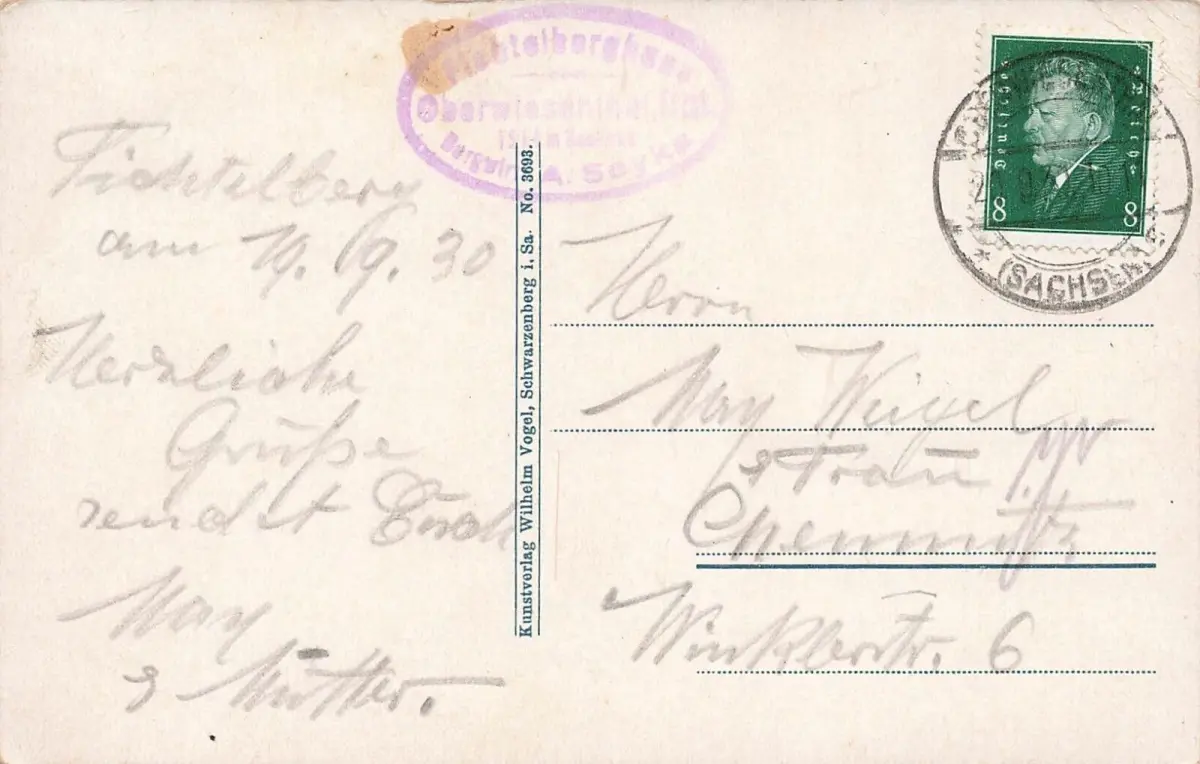 Fichtelberghaus
Oberwiesenthal
Bergwirt A. Seyka
Deutsches Reich
8 8
(SACHSEN)
Fichtelberg
am 19. 9. 30
Herzliche
Grüße
sendet Euch
Max
& Mutter.
Kunstverlag Wilhelm Vogel, Schwarzenberg i. Sa. No. 3693.
Herrn
Max Weigel
& Frau
Chemnitz
Winklerstr. 6